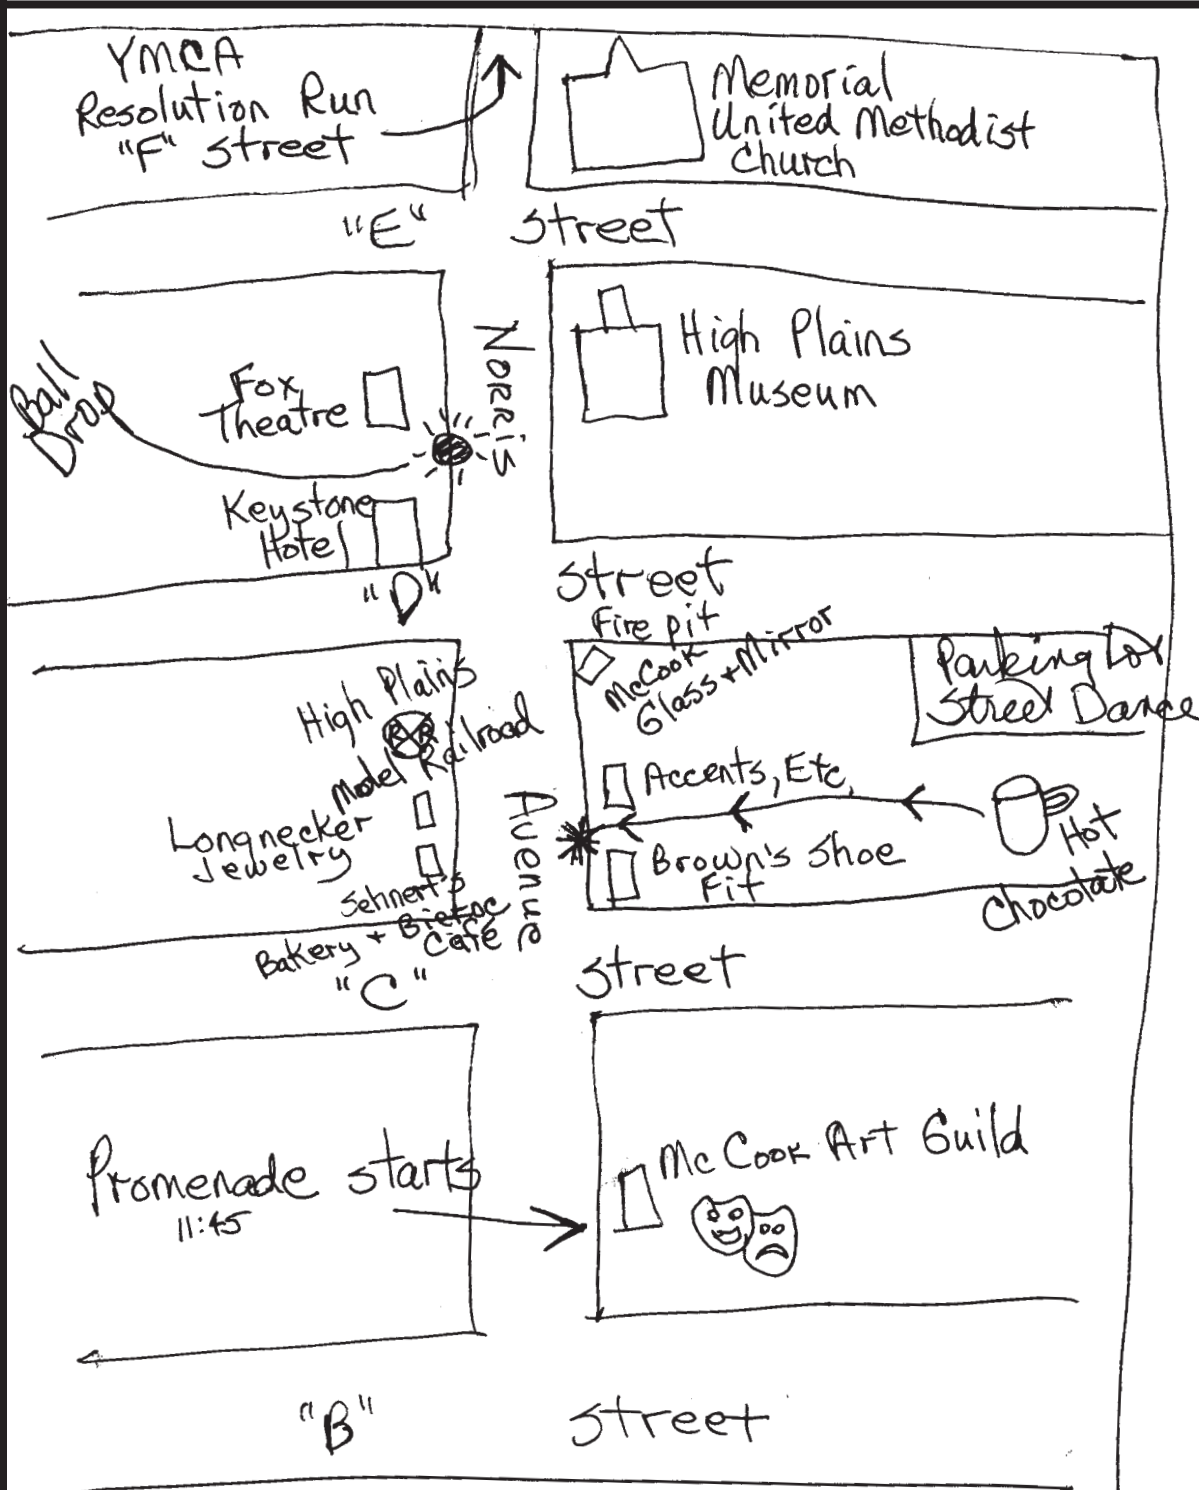 YMCA
Resolution Run
"F" Street
Memorial
United Methodist
Church
"E" Street
Ball
Drop
Fox
Theatre
Keystone
Hotel
Norris
High Plains
Museum
"D" Street
Fire pit
McCook
Glass + Mirror
Parking Lot
Street Dance
High Plains
RR
Model Railroad
Longnecker
Jewelry
Sehnert's
Bakery + Bieroc
Café
Avenue
Accents, Etc.
Brown's Shoe
Fit
Hot
Chocolate
"C" Street
Promenade starts
11:45
McCook Art Guild
"B" Street